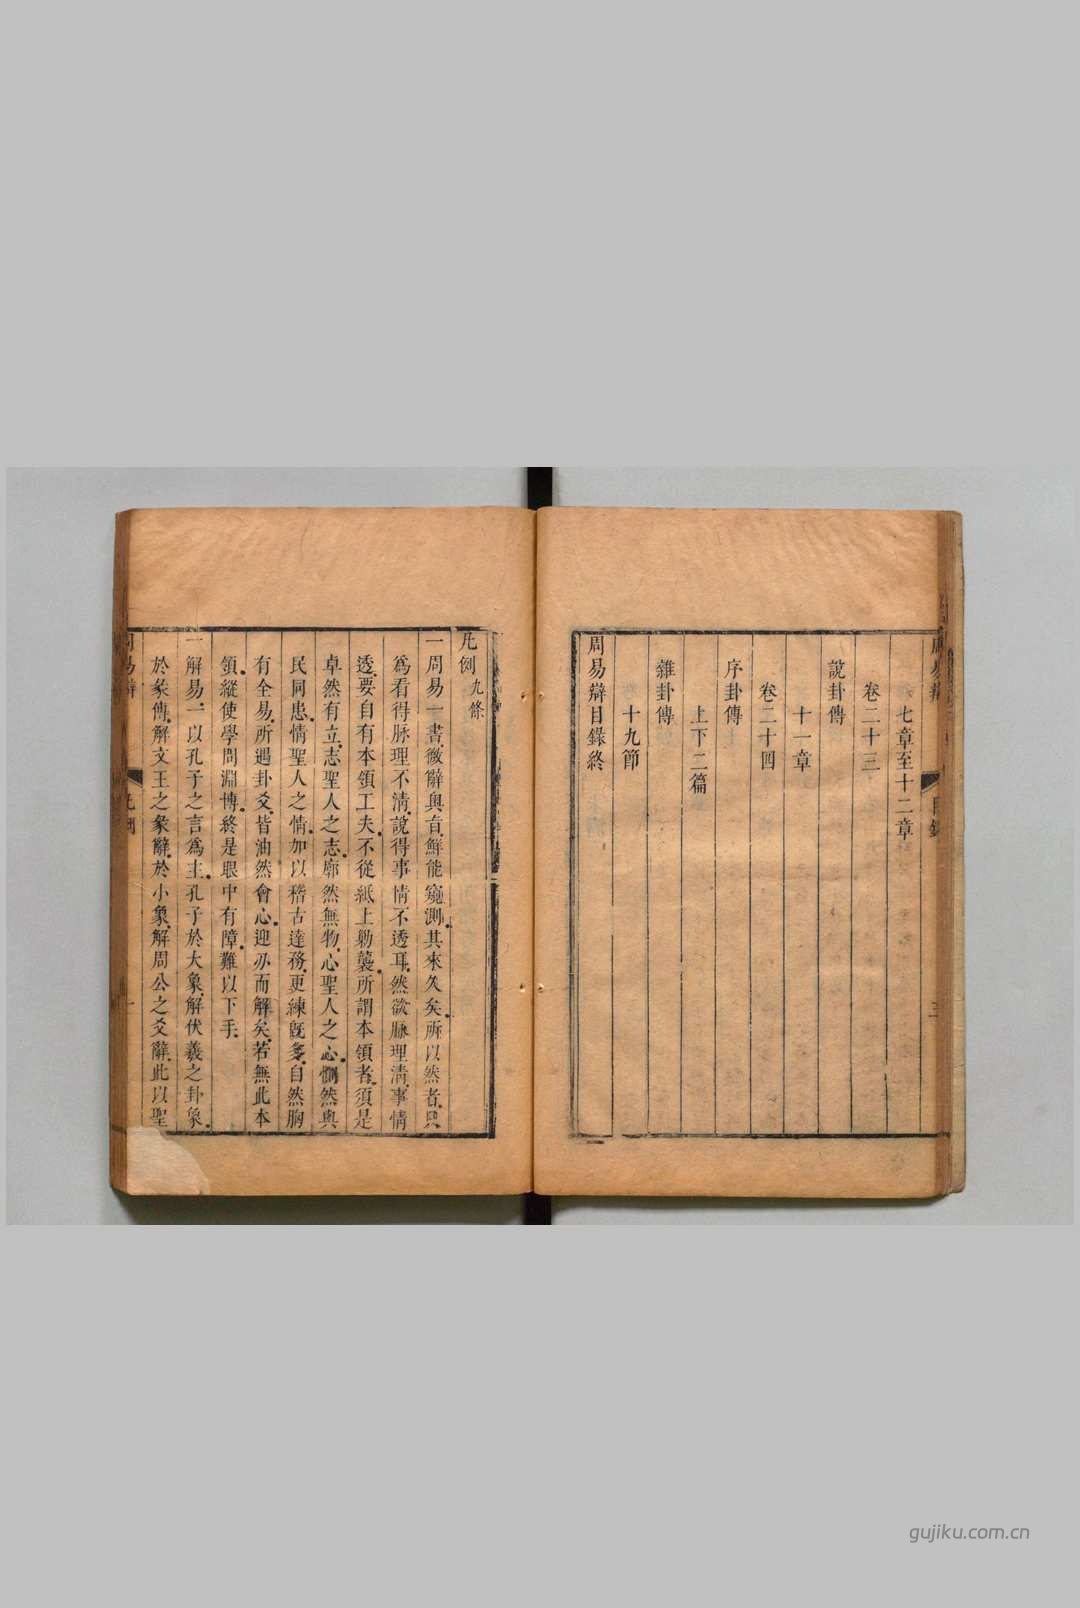 七章至十二章
卷二十三
說卦傳
十一章
卷二十四
序卦傳
上下二篇
雜卦傳
十九節
周易辯目錄終
凡例九條
一周易一書微辭與旨鮮能窺測其來久矣所以然者只
爲看得脉理不清說得事情不透耳然欲脉理清事情
透要自有本領工夫不從紙上勦襲所謂本領者須是
卓然有立志聖人之志廓然無物心聖人之心惻然與
民同患情聖人之情加以稽古達務更練旣多自然胸
有全易所遇卦爻皆油然會心迎刃而解矣若無此本
領縱使學問淵博終是眼中有障難以下手
一解易一以孔子之言爲主孔子於大象解伏羲之卦象
於彖傳解文王之彖辭於小象解周公之爻辭此以聖
周易辯
凡例
一
gujiku.com.cn